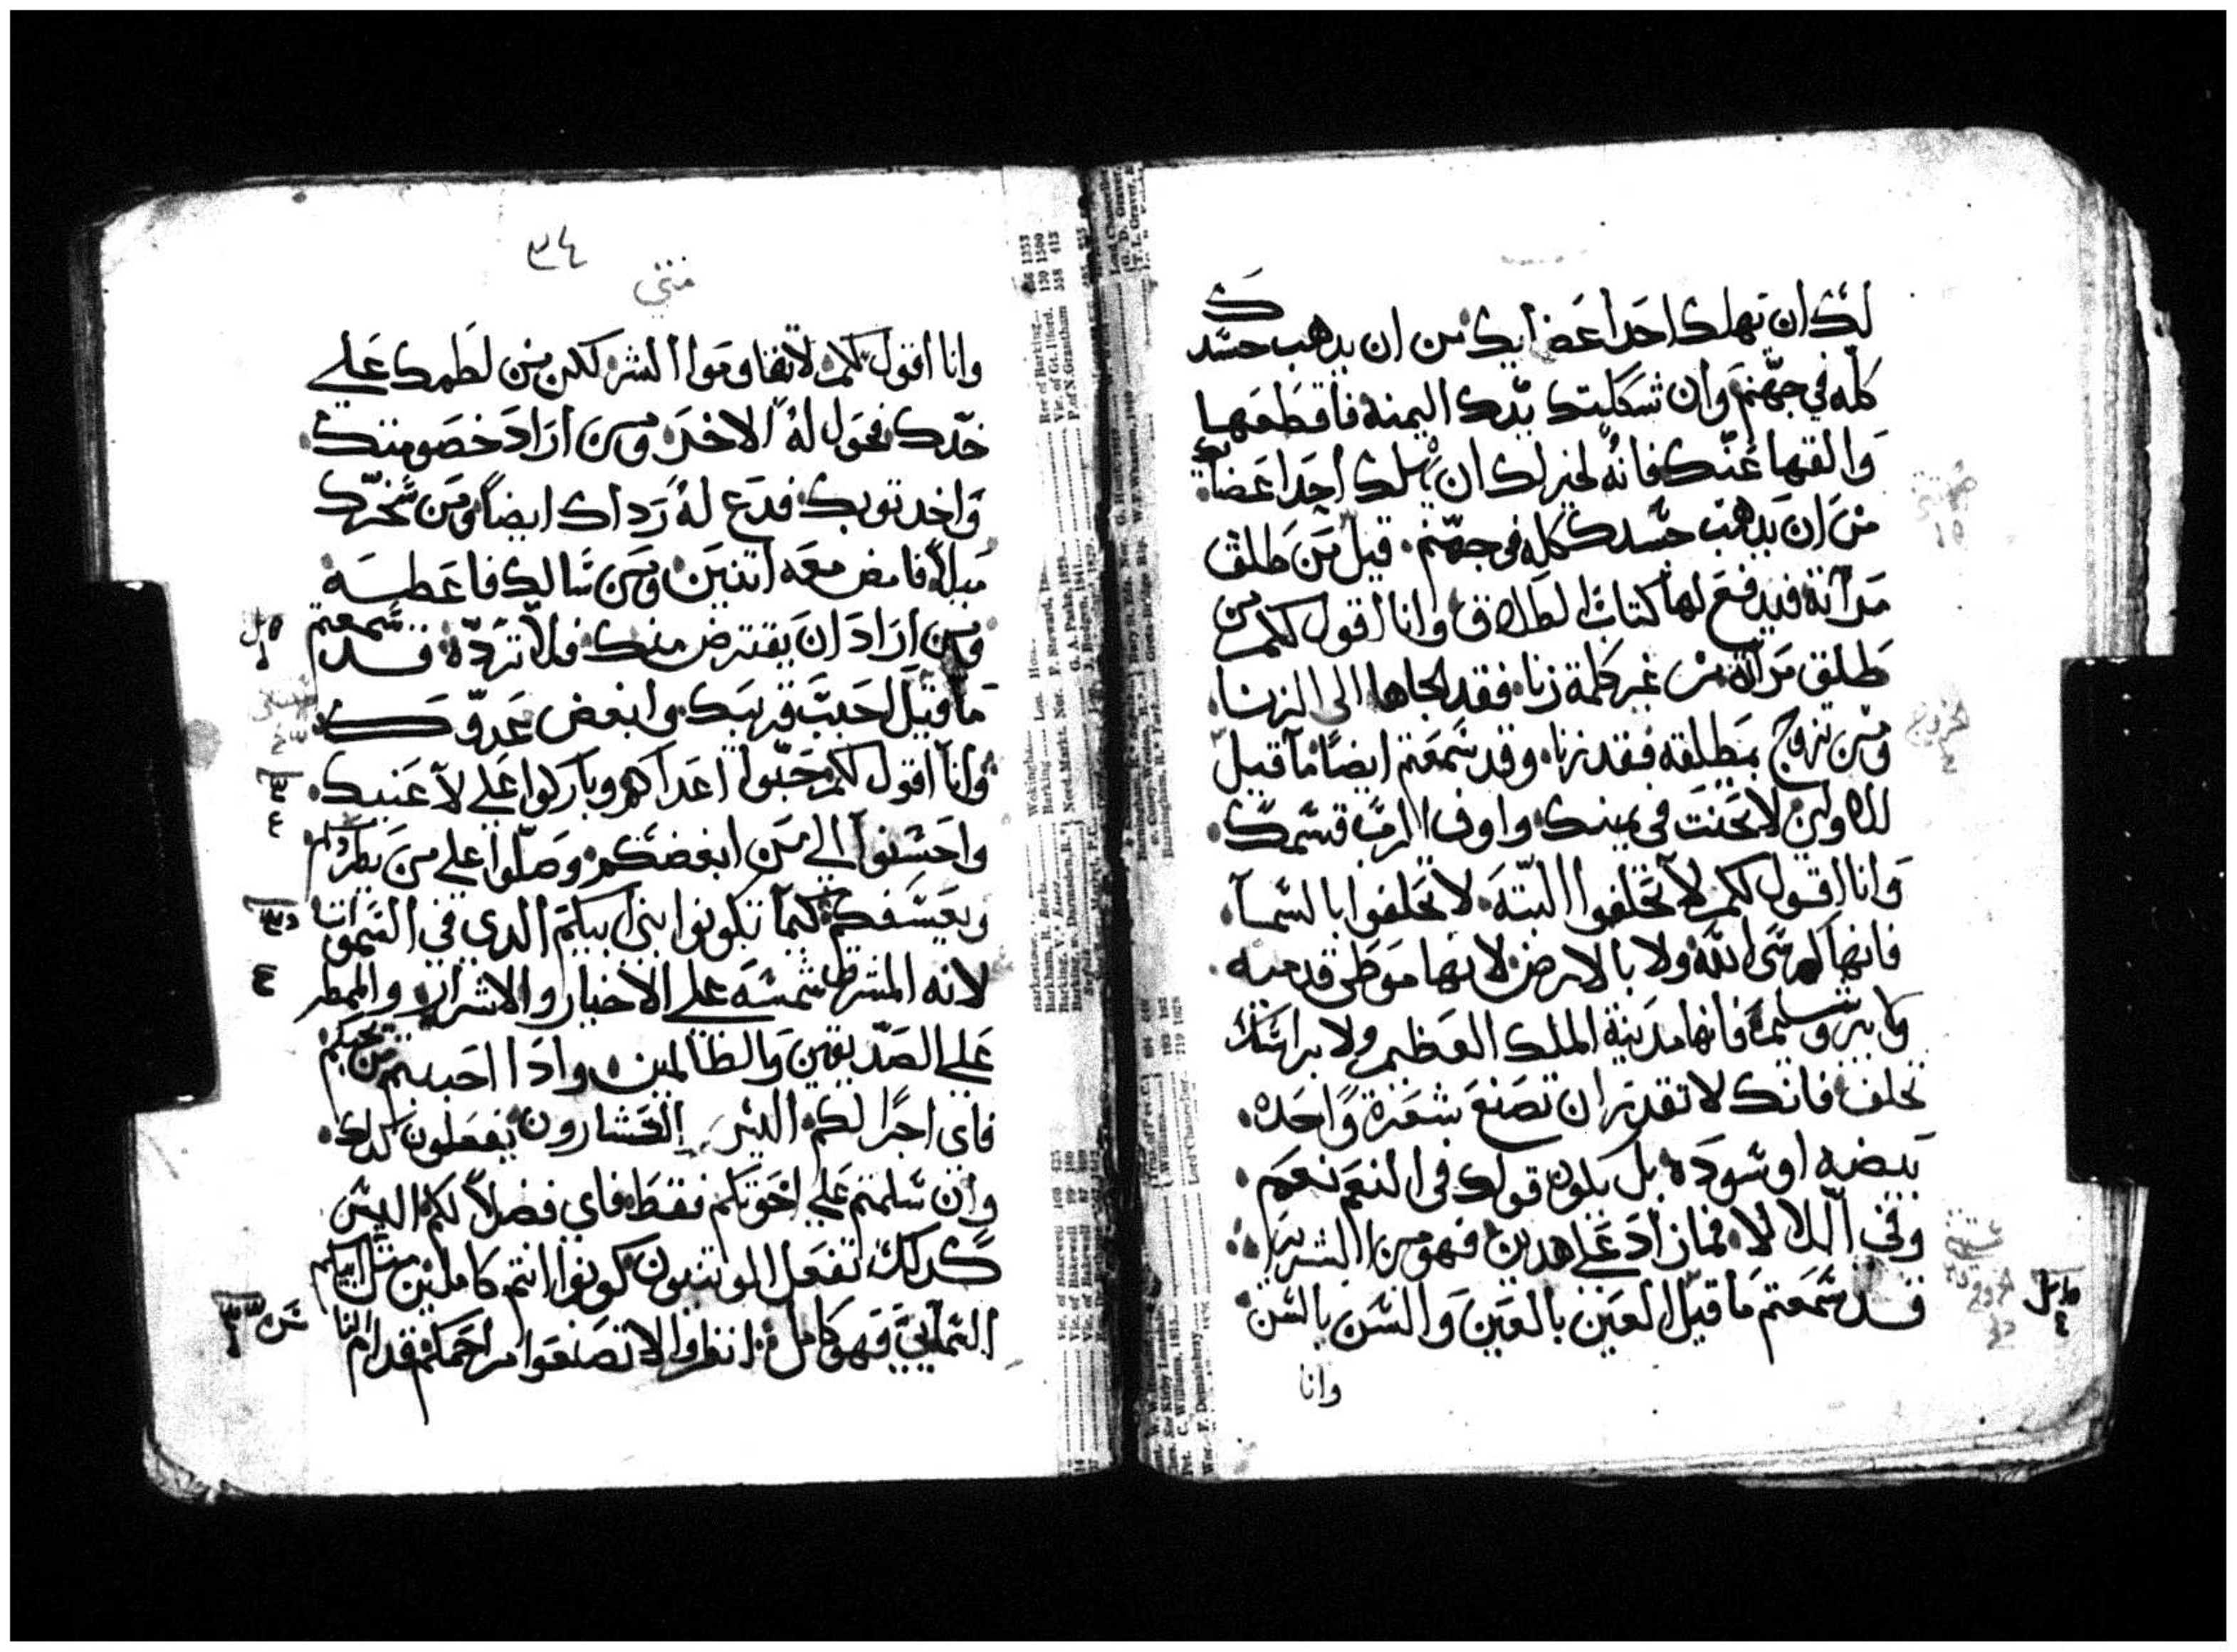 لك ان تهلك احد اعضايك من ان يدهب جسدك
كله في جهنم وان شككتك يدك اليمنه فاقطعها
والقها عنك فانه لخير لك ان يهلك احد اعضاك
من ان يدهب جسدك كله في جهنم قيل من طلق
مراته فيدفع لها كتاب الطلاق وانا اقول لكم من
طلق مراته من غير كلمة زنا فقد الجاها الى الزنا
ومن تزوج بمطلقه فقد زنا وقد سمعتم ايضا ما قيل
للاولين لا تحنت في يمينك واوف الرب قسمك
وانا اقول لكم لا تحلفوا البتة لا تحلفوا بالسما
فانها كرسي الله ولا بالارض لانها موطى قدميه
ولا بيروشليم فانها مدينة الملك العظيم ولا براسك
تحلف فانك لا تقدر ان تصنع شعرة واحده
بيضه او سوده بل يكون قولك في النعم نعم
وفي اللا لا فما زاد على هدين فهو من الشرير
قد سمعتم ما قيل العين بالعين والسن بالسن
وانا
٣٤
متي
وانا اقول لكم لا تقاوموا الشر لكن من لطمك على
خدك فحول له الاخر ومن اراد خصومتك
واخد توبك فدع له رداك ايضا ومن سخرك
ميلا فامض معه اتنين ومن سالك فاعطيه
ومن اراد ان يقترض منك فلا ترده قد سمعتم
ما قيل احبب قريبك وابغض عدوك
وانا اقول لكم حبوا اعداكم وباركوا على لاعنيك
واحسنوا الي من ابغضكم وصلوا على من يطردكم
ويعسفكم كيما تكونوا بني ابيكم الدي في السموات
لانه المشرق شمسه على الاخيار والاشرار والممطر
على الصديقين والظالمين وادا احببتم من يحبكم
فاي اجرا لكم اليس العشارون يفعلون كدلك
وان سلمتم على اخوتكم فقط فاي فضلا لكم اليس
كدلك تفعل الوتنيون كونوا انتم كاملين متل ابيكم
السمايي فهو كامل انظروا لا تصنعوا مراحمكم قدام الناس